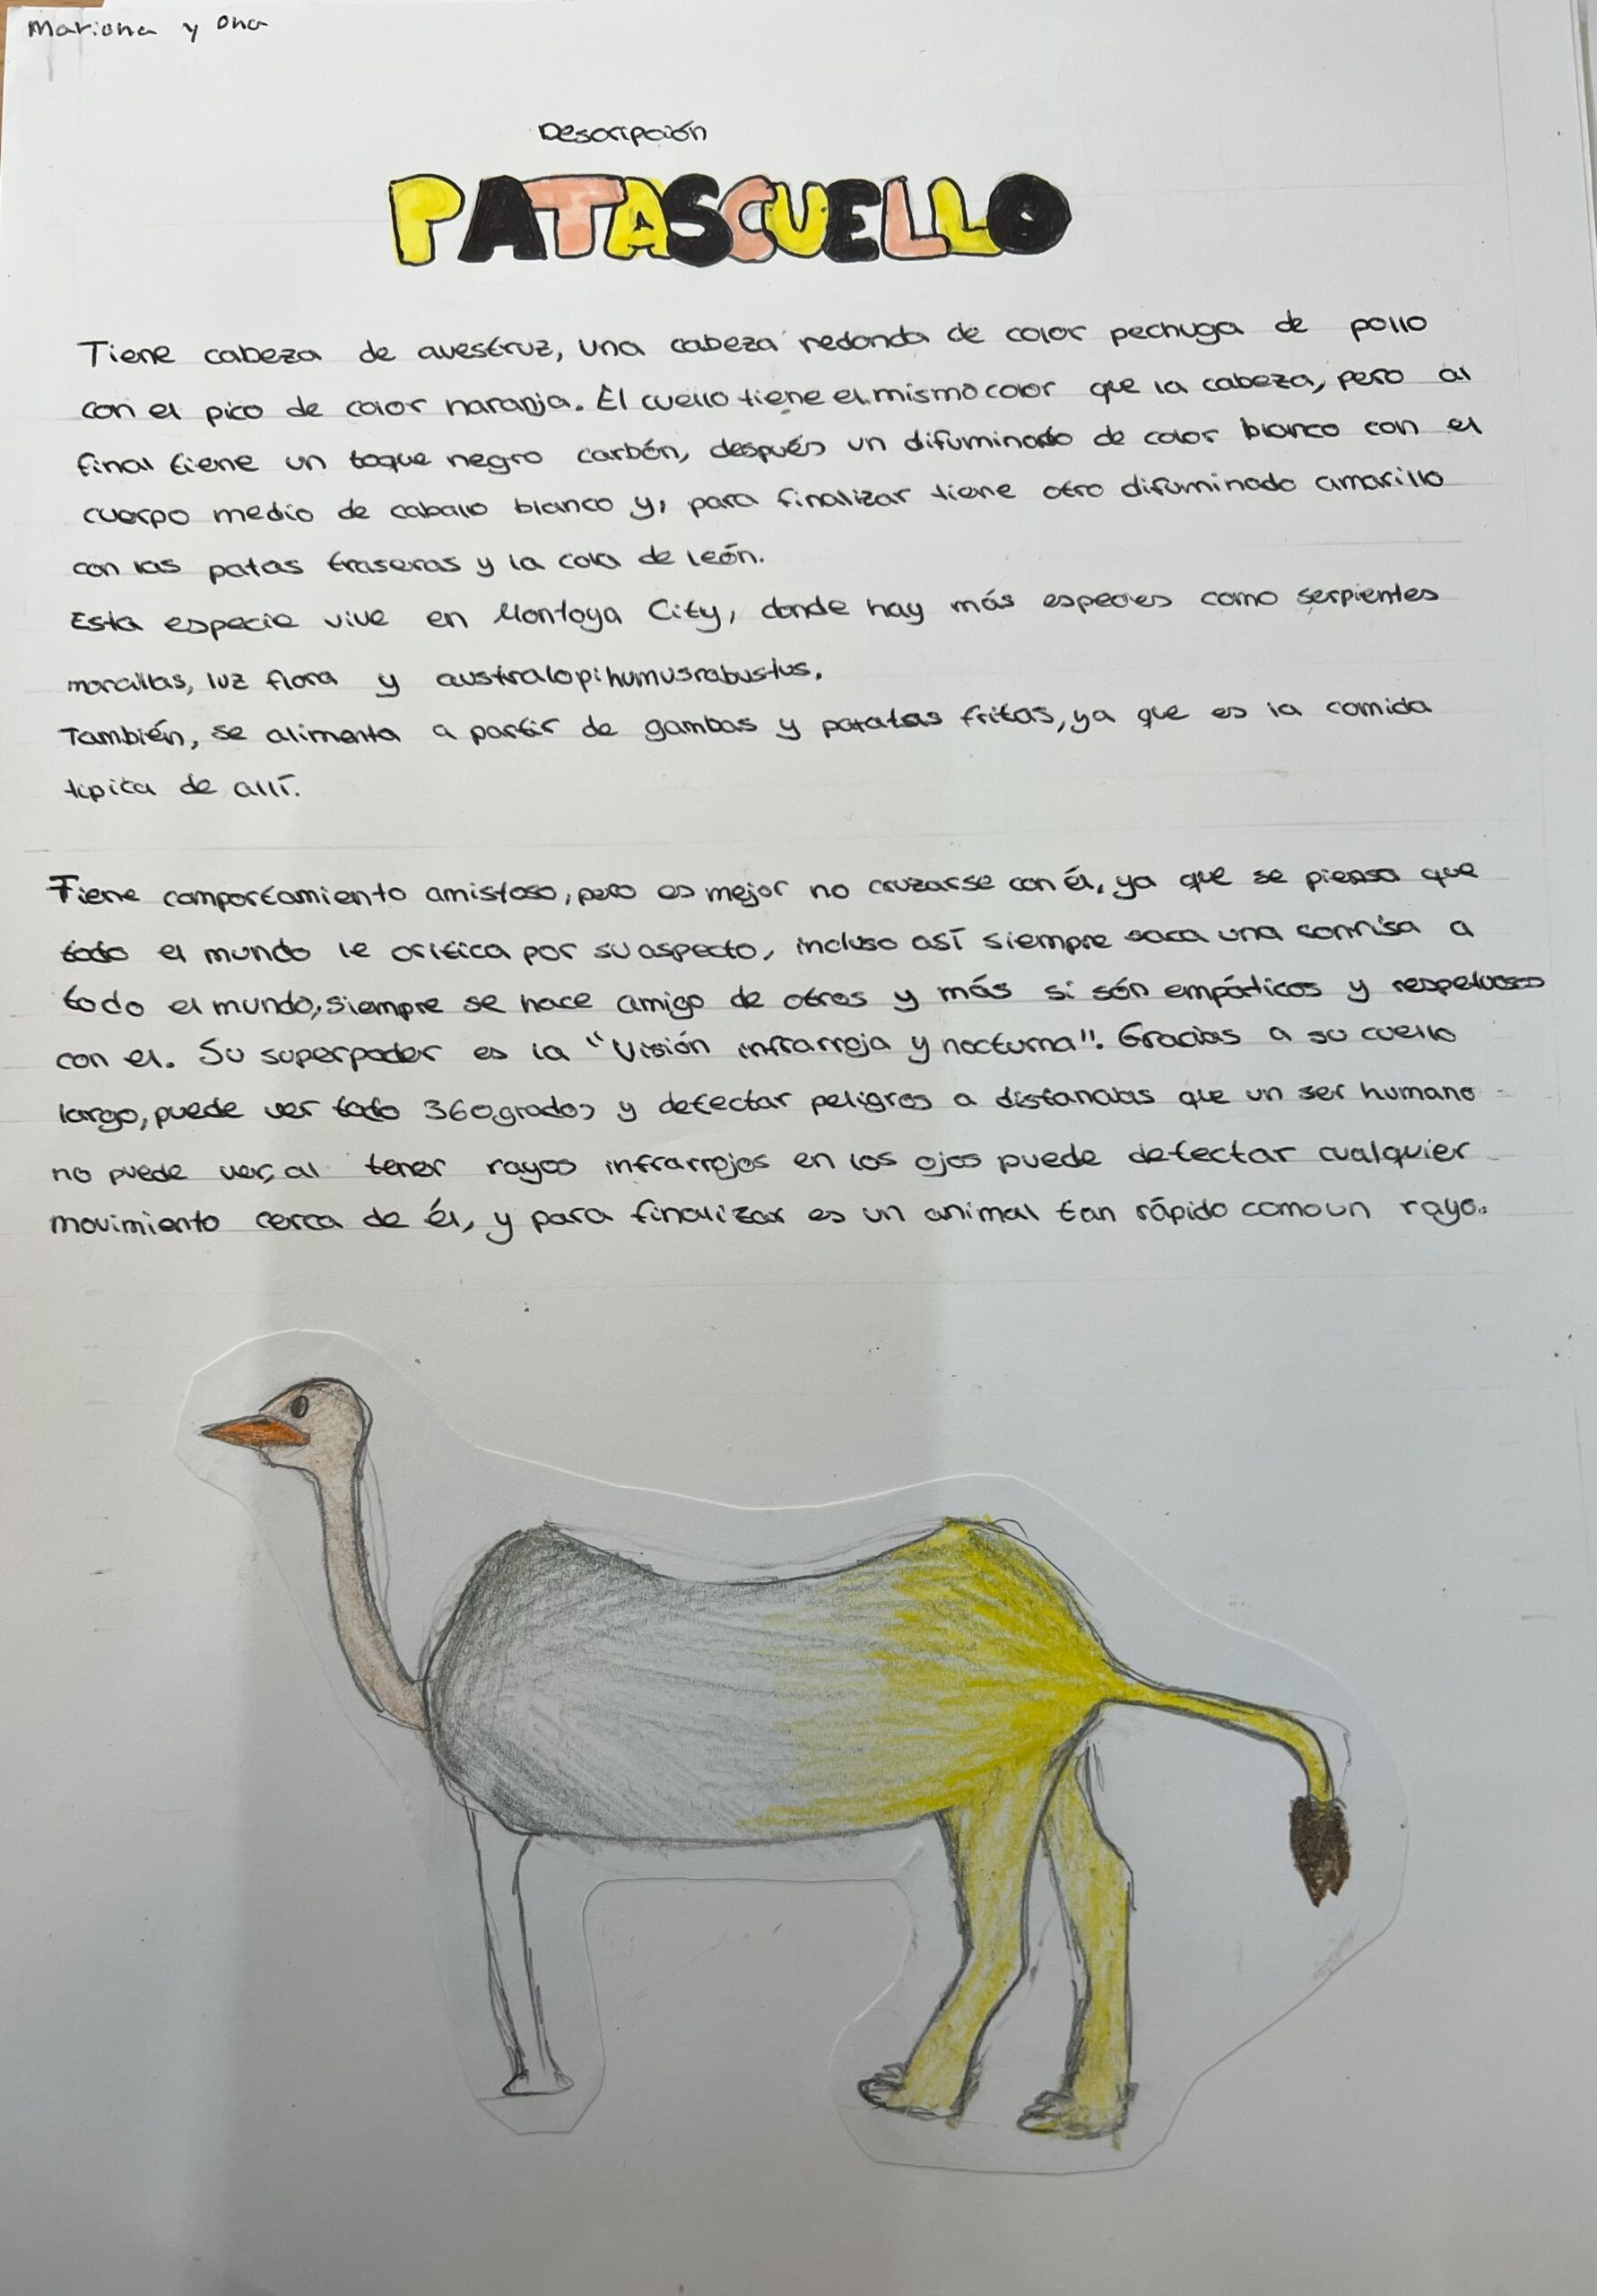 Mariona y Ona
Descripción
PATASCUELLO
Tiene cabeza de avestruz, una cabeza redonda de color pechuga de pollo
con el pico de color naranja. El cuello tiene el mismo color que la cabeza, pero al
final tiene un toque negro carbón, después un difuminado de color blanco con el
cuerpo medio de cabalo blanco y, para finalizar tiene otro difuminado amarillo
con las patas traseras y la cola de león.
Esta especie vive en Montoya City, donde hay más especies como serpientes
morcillas, luz flora y australopihumusrabustus.
También, se alimenta a partir de gambas y patatas fritas, ya que es la comida
típica de allí.
Tiene comportamiento amistoso, pero es mejor no cruzarse con él, ya que se piensa que
todo el mundo le critica por su aspecto, incluso así siempre saca una sonrisa a
todo el mundo, siempre se hace amigo de otros y más si són empáticos y respetuosos
con el. Su superpoder es la "Visión infrarroja y nocturna". Gracias a su cuello
largo, puede ver todo 360 grados y detectar peligros a distancias que un ser humano
no puede ver, al tener rayos infrarrojos en los ojos puede detectar cualquier
movimiento cerca de él, y para finalizar es un animal tan rápido como un rayo.